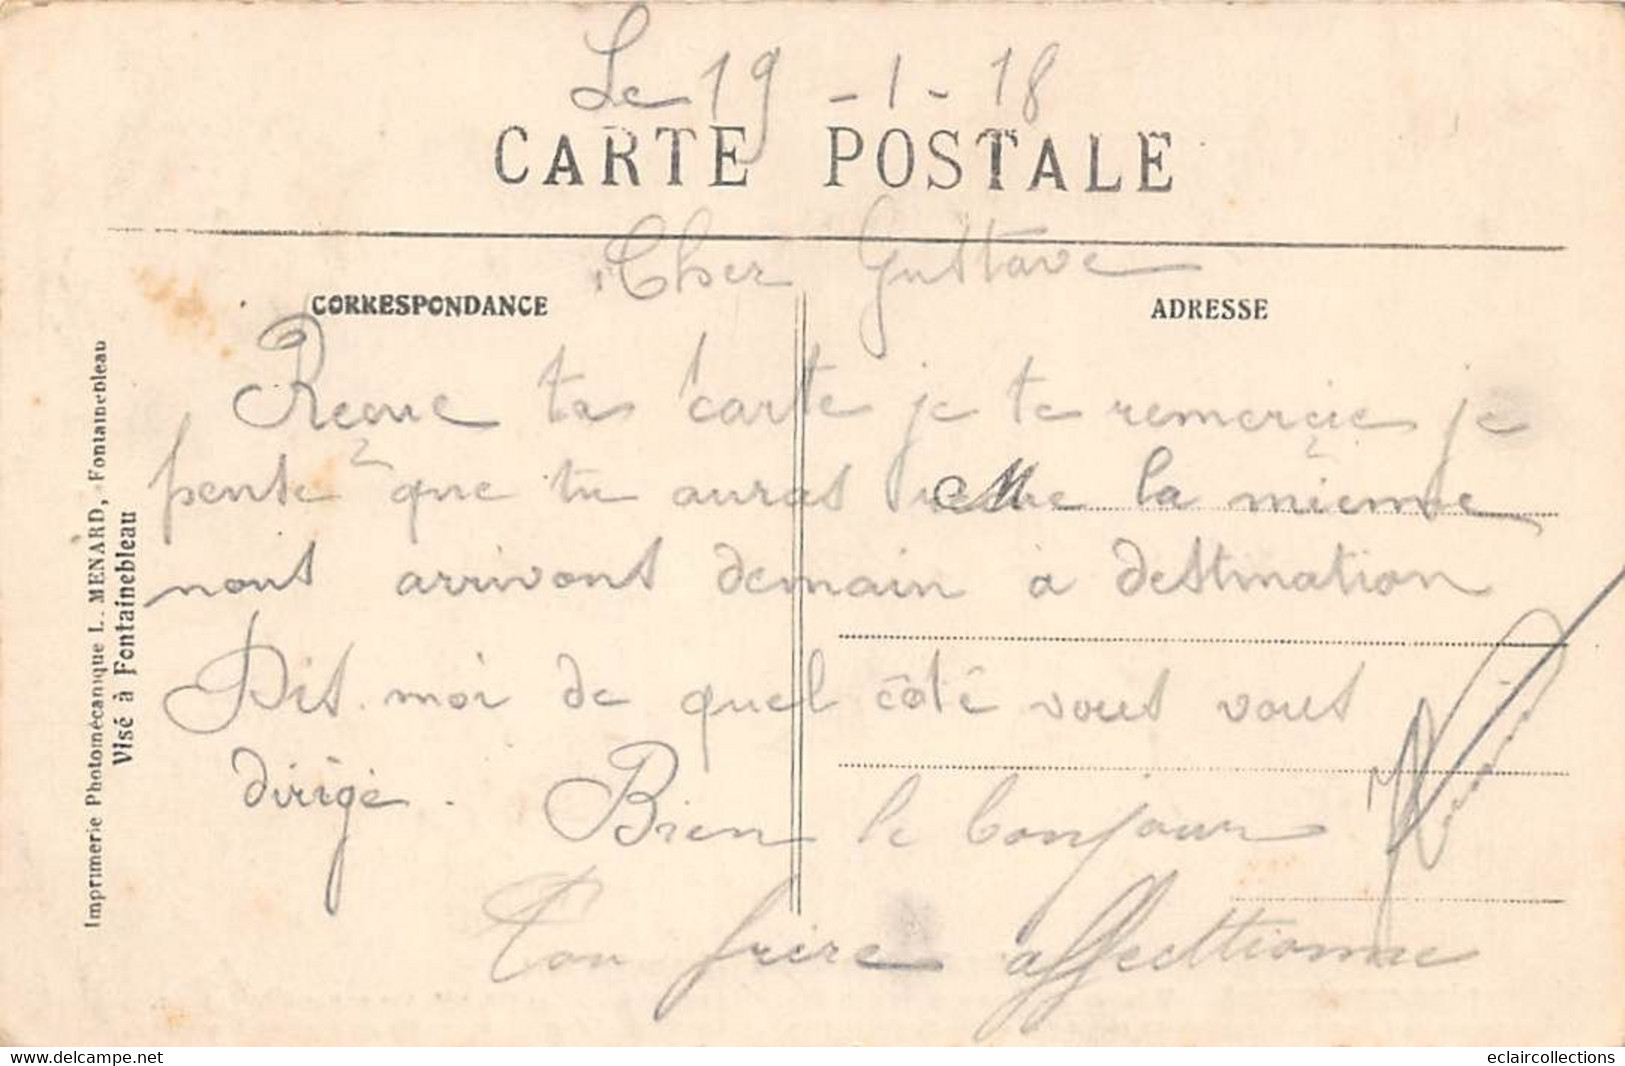 Le 19 - 1 - 18
CARTE POSTALE
Cher Gustave
CORRESPONDANCE
ADRESSE
Recue ta carte je te remercie je
pense que tu auras la mienne
nous arrivons demain à destination
Dis moi de quel côté vous vous
dirigé. Bien le bonjour
Ton frère affecttionne
Imprimerie Photomécanique L. MENARD, Fontainebleau
Visé à Fontainebleau
www.delcampe.net
eclaircollections